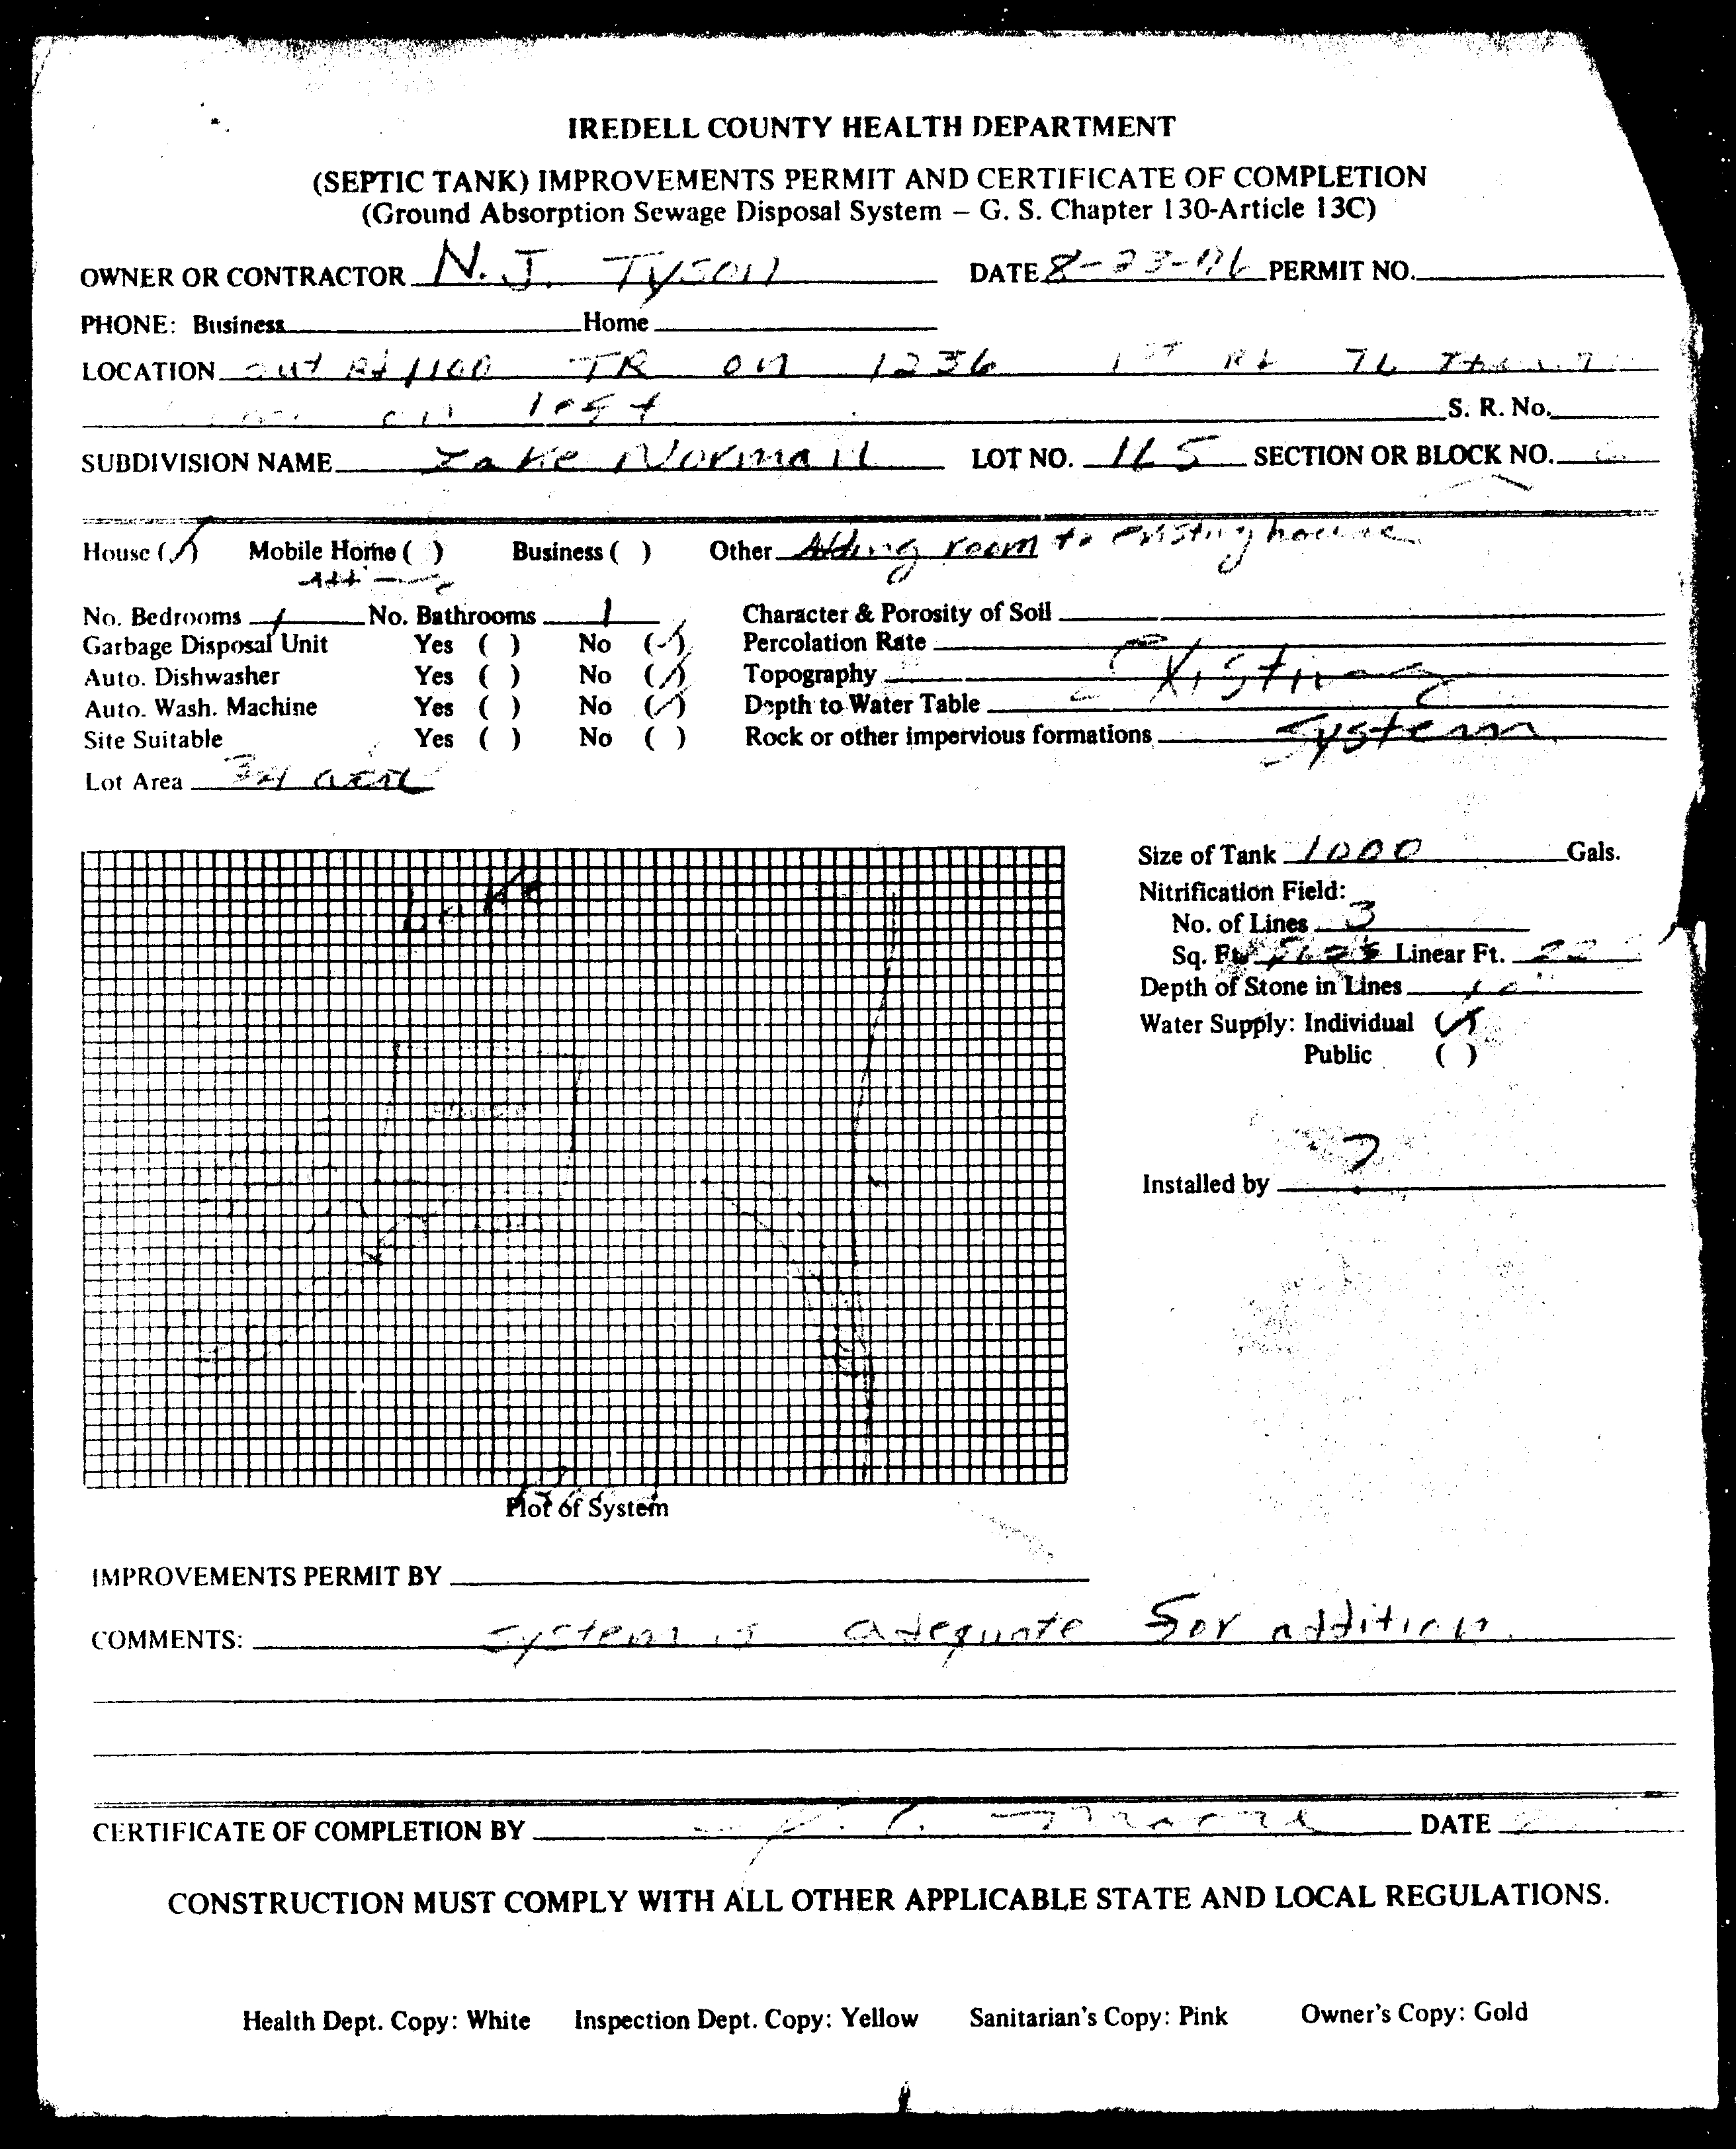 IREDELL COUNTY HEALTH DEPARTMENT
(SEPTIC TANK) IMPROVEMENTS PERMIT AND CERTIFICATE OF COMPLETION
(Ground Absorption Sewage Disposal System – G. S. Chapter 130-Article 13C)
OWNER OR CONTRACTOR N. J. Tyson DATE PERMIT NO.
PHONE: Business Home
LOCATION out Rd 1100 TR on 1236 1st Rt TL
on left S. R. No.
SUBDIVISION NAME Lake Norman LOT NO. 115 SECTION OR BLOCK NO.
House (✓) Mobile Home ( ) Business ( ) Other Adding room to existing house
Adding
No. Bedrooms 1 No. Bathrooms 1 Character & Porosity of Soil
Garbage Disposal Unit Yes ( ) No (✓) Percolation Rate
Auto. Dishwasher Yes ( ) No (✓) Topography Existing
Auto. Wash. Machine Yes ( ) No (✓) Depth to Water Table
Site Suitable Yes ( ) No ( ) Rock or other impervious formations System
Lot Area 3/4 acre
Lake
Size of Tank 1000 Gals.
Nitrification Field:
No. of Lines 3
Sq. Ft. Linear Ft.
Depth of Stone in Lines
Water Supply: Individual (✓)
Public ( )
Installed by ?
Plot of System
IMPROVEMENTS PERMIT BY
COMMENTS: system is adequate for addition.
CERTIFICATE OF COMPLETION BY DATE
CONSTRUCTION MUST COMPLY WITH ALL OTHER APPLICABLE STATE AND LOCAL REGULATIONS.
Health Dept. Copy: White Inspection Dept. Copy: Yellow Sanitarian's Copy: Pink Owner's Copy: Gold